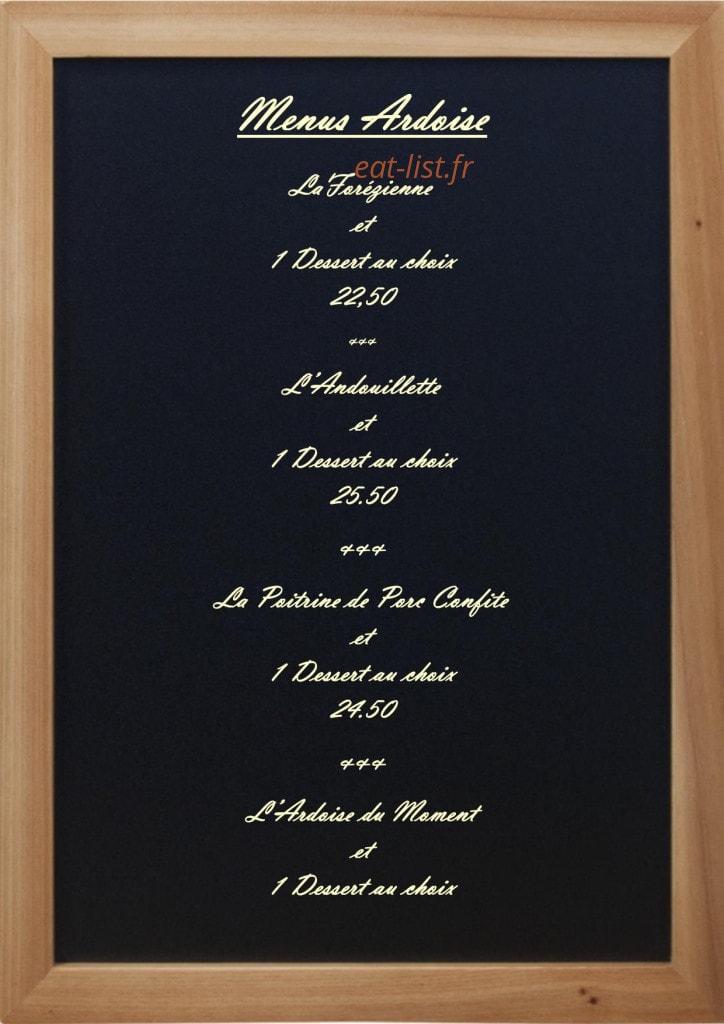 Menus Ardoise
eat-list.fr
La Forézienne
et
1 Dessert au choix
22,50
***
L'Andouillette
et
1 Dessert au choix
25.50
***
La Poitrine de Porc Confite
et
1 Dessert au choix
24.50
***
L'Ardoise du Moment
et
1 Dessert au choix